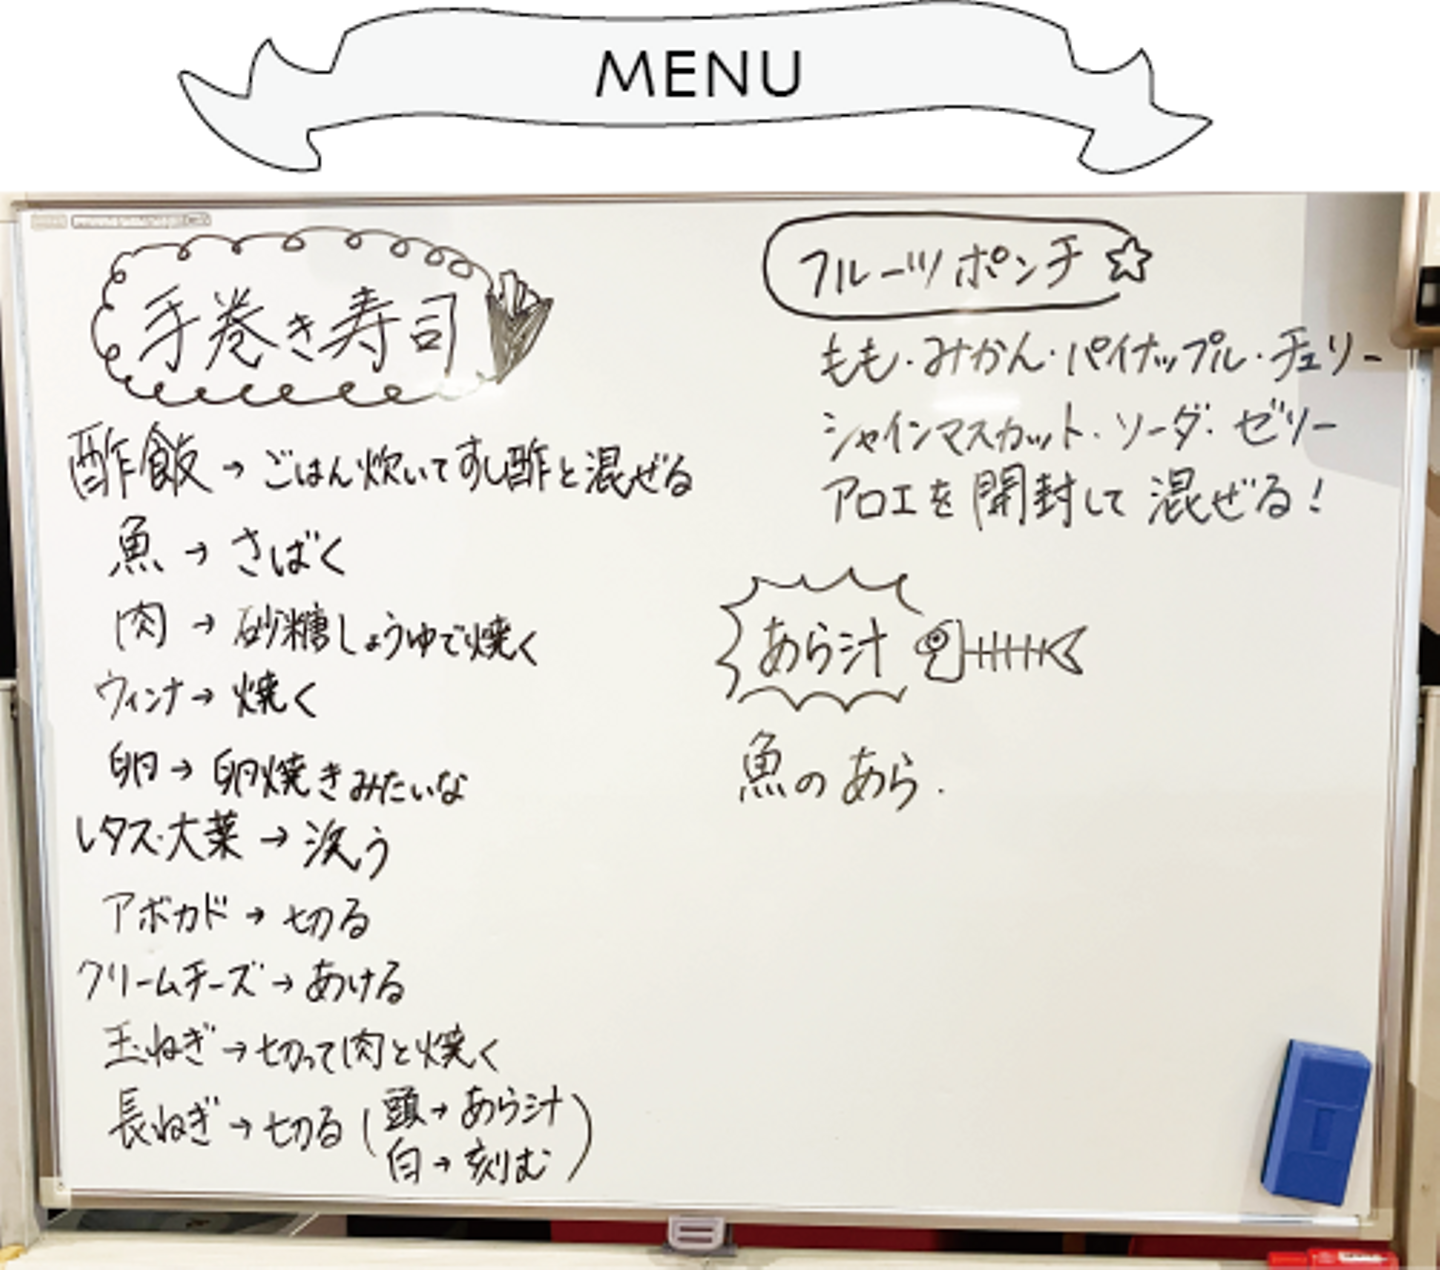 MENU
手巻き寿司
酢飯→ごはん炊いてすし酢と混ぜる
魚→さばく
肉→砂糖しょうゆで焼く
ウィンナ→焼く
卵→卵焼きみたいな
レタス・大葉→洗う
アボカド→切る
クリームチーズ→あける
玉ねぎ→切って肉と焼く
長ねぎ→切る(頭→あら汁
白→刻む)
フルーツポンチ☆
もも・みかん・パイナップル・チェリー
シャインマスカット・ソーダ・ゼリー
アロエを開封して混ぜる!
あら汁
魚のあら.